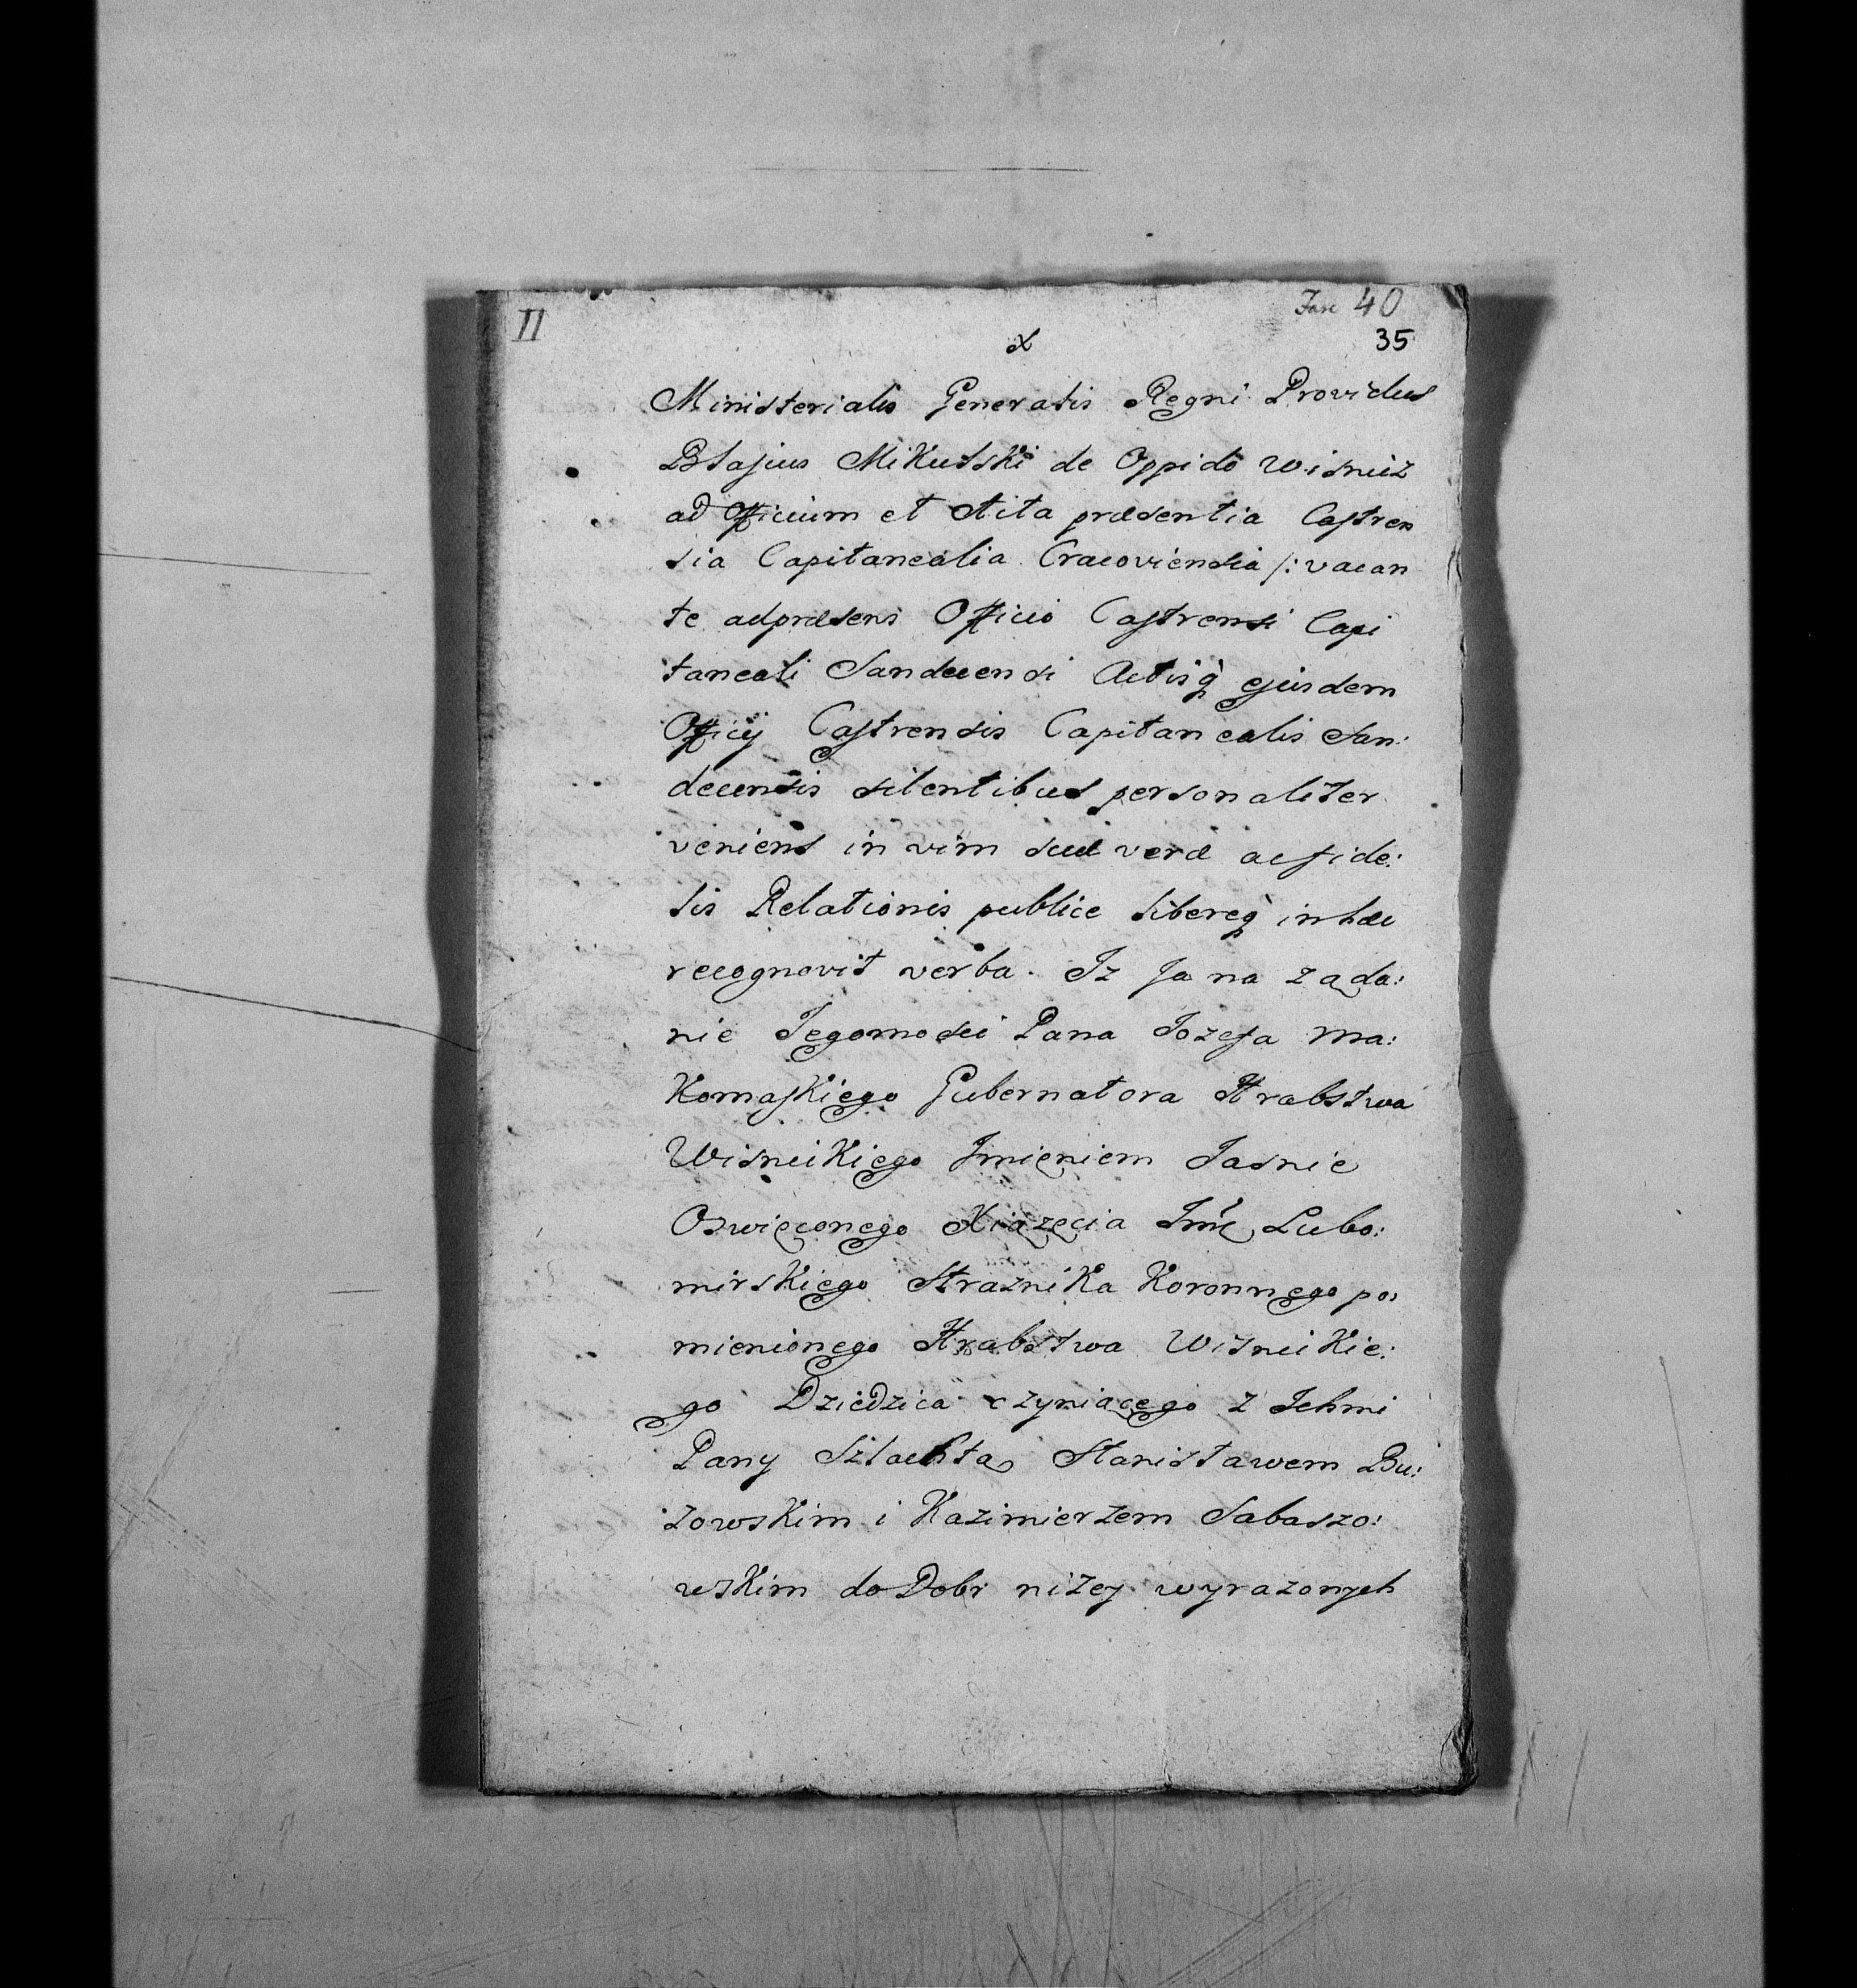 II
Fasc 40
35
Ministerialis Generalis Regni Providus
Blasius Mikulski de Oppido Wisnicz
ad Officium et Acta præsentia Castren
sia Capitanealia Cracoviensia /: vacan
te adpræsens Officio Castrensi Capi
taneali Sandecensi Actisq̀ ejusdem
Officij Castrensis Capitanealis San:
decensis silentibus personaliter
veniens in vim suæ veræ ac fide:
lis Relationis publice libereq̀ in hæc
recognovit verba. Iz Ja na ząda:
nie Jegomosci Pana Jozefa Ma:
Komaskiego Gubernatora Hrabstwa
Wisnickiego Imięniem Jasnie
Oswięconego Xiązęcia Jmć Lubo:
mirskiego Straznika Koronnego po:
mienionego Hrabstwa Wisnickie:
go Dziedzica czyniącego z Ichmi
Pany Szlachtą Stanisławem Bu:
zowskim i Kazimierzem Sabaszo:
wskim do Dobr nizey wyrazonych